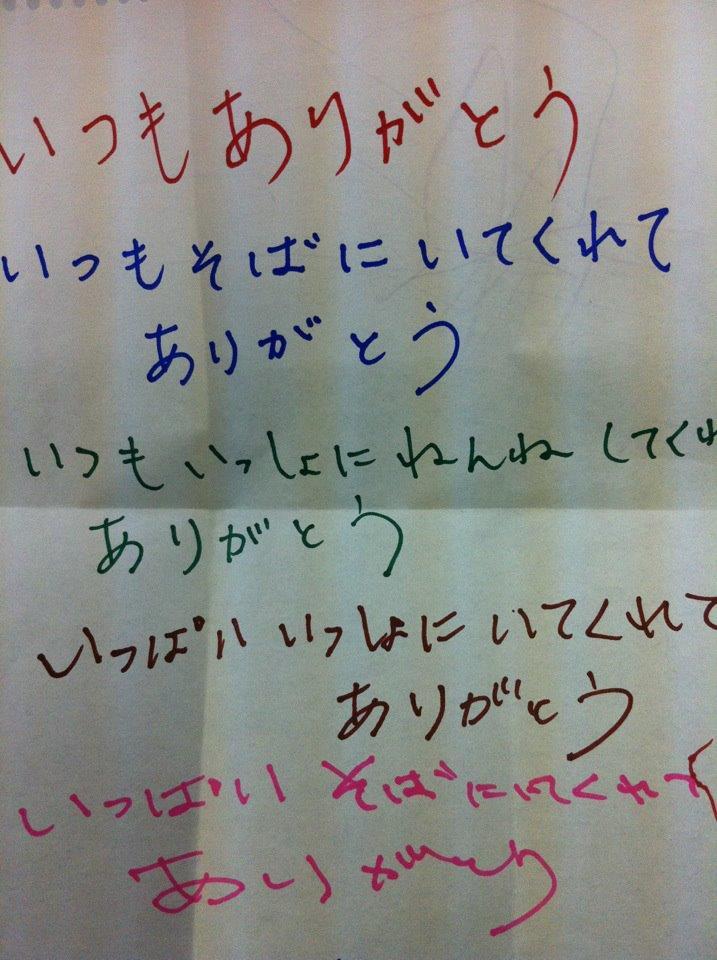 いつもありがとう
いつもそばにいてくれて
ありがとう
いつもいっしょにねんねしてくれ
ありがとう
いっぱいいっしょにいてくれて
ありがとう
いっぱいそばにいてくれて
ありがとう